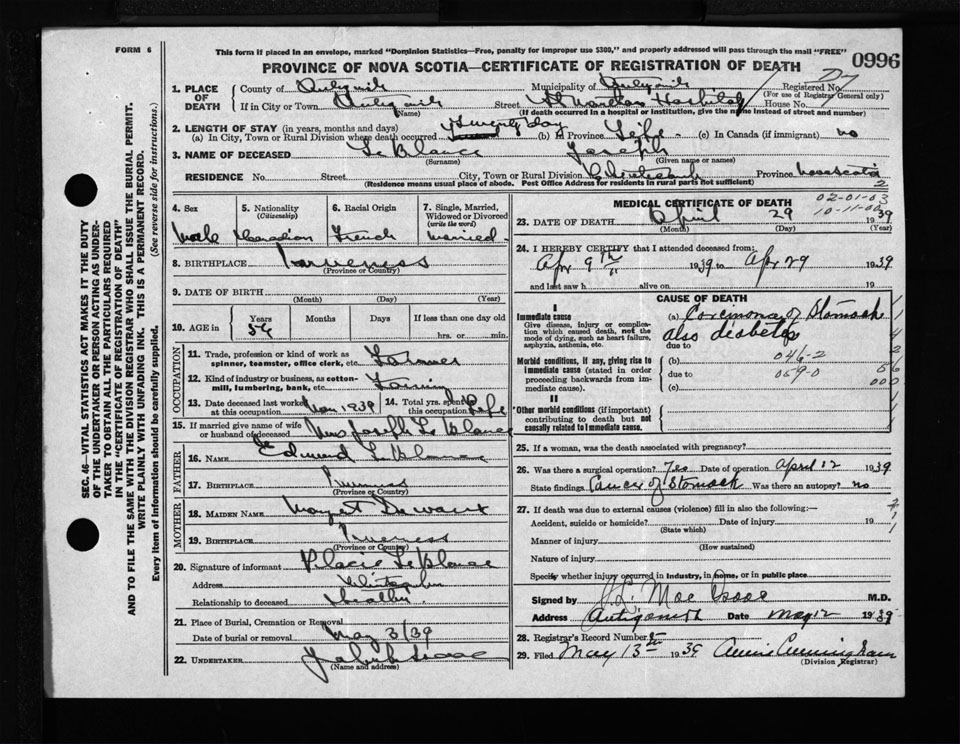 FORM 6
This form if placed in an envelope, marked "Dominion Statistics—Free, penalty for improper use $300," and properly addressed will pass through the mail "FREE"
PROVINCE OF NOVA SCOTIA—CERTIFICATE OF REGISTRATION OF DEATH
0996
1. PLACE OF DEATH
County of Antigonish Municipality of Antigonish Registered No.
(For use of Registrar General only)
If in City or Town Antigonish Street St Marthas Hospital House No.
(Name) (If death occurred in a hospital or institution, give the name instead of street and number)
2. LENGTH OF STAY (in years, months and days)
(a) In City, Town or Rural Division where death occurred Twenty day (b) In Province Life (c) In Canada (if immigrant) no
3. NAME OF DECEASED Le Blanc Joseph
(Surname) (Given name or names)
RESIDENCE No. Street City, Town or Rural Division Province Nova Scotia
(Residence means usual place of abode. Post Office Address for residents in rural parts not sufficient)
2
4. Sex
5. Nationality (Citizenship)
6. Racial Origin
7. Single, Married, Widowed or Divorced (write the word)
Male Canadian French Married
8. BIRTHPLACE Inverness
(Province or Country)
9. DATE OF BIRTH
(Month) (Day) (Year)
10. AGE in
Years Months Days If less than one day
hrs. or min.
OCCUPATION
11. Trade, profession or kind of work as spinner, teamster, office clerk, etc. Farmer
12. Kind of industry or business, as cotton-mill, lumbering, bank, etc. Farming
13. Date deceased last worked at this occupation Mar 1939
14. Total yrs. spent in this occupation Life
15. If married give name of wife or husband of deceased Mrs Joseph Le Blanc
FATHER
16. NAME Edmund Le Blanc
17. BIRTHPLACE Inverness
(Province or Country)
MOTHER
18. MAIDEN NAME
19. BIRTHPLACE Inverness
(Province or Country)
20. Signature of informant Placie LeBlanc
Address
Relationship to deceased Brother
21. Place of Burial, Cremation or Removal
Date of burial or removal May 3/39
22. UNDERTAKER
(Name and address)
MEDICAL CERTIFICATE OF DEATH
02-01-03
10-11-00
23. DATE OF DEATH April 29 1939
(Month) (Day) (Year)
24. I HEREBY CERTIFY that I attended deceased from:
Apr 9th 1939 to Apr 29 1939
and last saw h alive on 19
CAUSE OF DEATH
I
Immediate cause
Give disease, injury or complication which caused death, not the mode of dying, such as heart failure, asphyxia, asthenia, etc.
(a) Carcinoma of Stomach
also diabetes
due to
Morbid conditions, if any, giving rise to immediate cause (stated in order proceeding backwards from immediate cause).
(b) 046-2
due to 059-0
(c)
000
II
Other morbid conditions (if important) contributing to death but not causally related to immediate cause.
25. If a woman, was the death associated with pregnancy?
26. Was there a surgical operation? Yes Date of operation April 12 1939
State findings Cancer of Stomach Was there an autopsy? no
27. If death was due to external causes (violence) fill in also the following:—
Accident, suicide or homicide? Date of injury 19
(State which)
Manner of injury
(How sustained)
Nature of injury
Specify whether injury occurred in industry, in home, or in public place
Signed by J. L. MacIsaac M.D.
Address Antigonish Date May 2 1939
28. Registrar's Record Number
29. Filed May 13th 1939 Annie Cunningham
(Division Registrar)
SEC. 46—VITAL STATISTICS ACT MAKES IT THE DUTY OF THE UNDERTAKER OR PERSON ACTING AS UNDERTAKER TO OBTAIN ALL THE PARTICULARS REQUIRED IN THE "CERTIFICATE OF REGISTRATION OF DEATH" AND TO FILE THE SAME WITH THE DIVISION REGISTRAR WHO SHALL ISSUE THE BURIAL PERMIT.
WRITE PLAINLY WITH UNFADING INK. THIS IS A PERMANENT RECORD.
Every item of information should be carefully supplied. (See reverse side for instructions.)